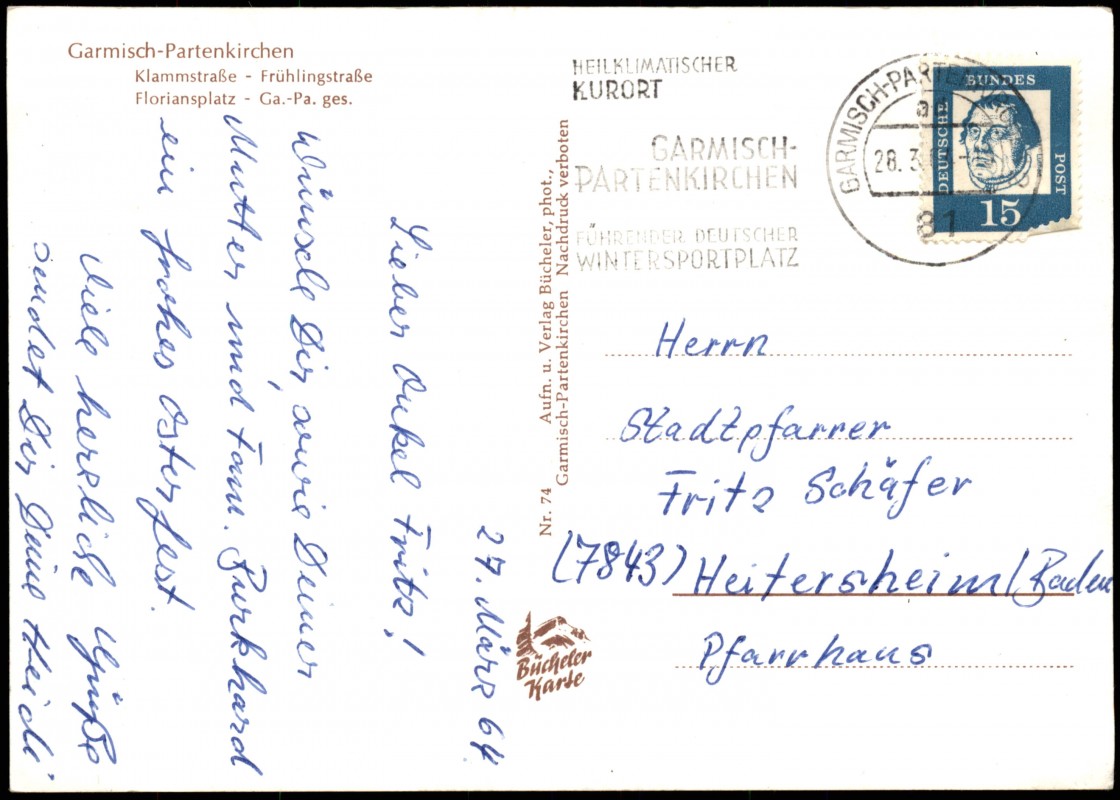 Garmisch-Partenkirchen
Klammstraße - Frühlingstraße
Floriansplatz - Ga.-Pa. ges.
27. März 64
Lieber Onkel Fritz!
Wünsche Dir, sowie Deiner
Mutter und Fam. Burkhard
ein frohes Osterfest.
Viele herzliche Grüße
sendet Dir Deine Heidi
Nr. 74 Aufn. u. Verlag Bücheler, phot.,
Garmisch-Partenkirchen Nachdruck verboten
Bücheler
Karte
HEILKLIMATISCHER
KURORT
GARMISCH-
PARTENKIRCHEN
FÜHRENDER DEUTSCHER
WINTERSPORTPLATZ
GARMISCH-PARTENKIRCHEN
ad
28. 3.
81
DEUTSCHE
BUNDES
POST
15
Herrn
Stadtpfarrer
Fritz Schäfer
(7843) Heitersheim/Baden
Pfarrhaus